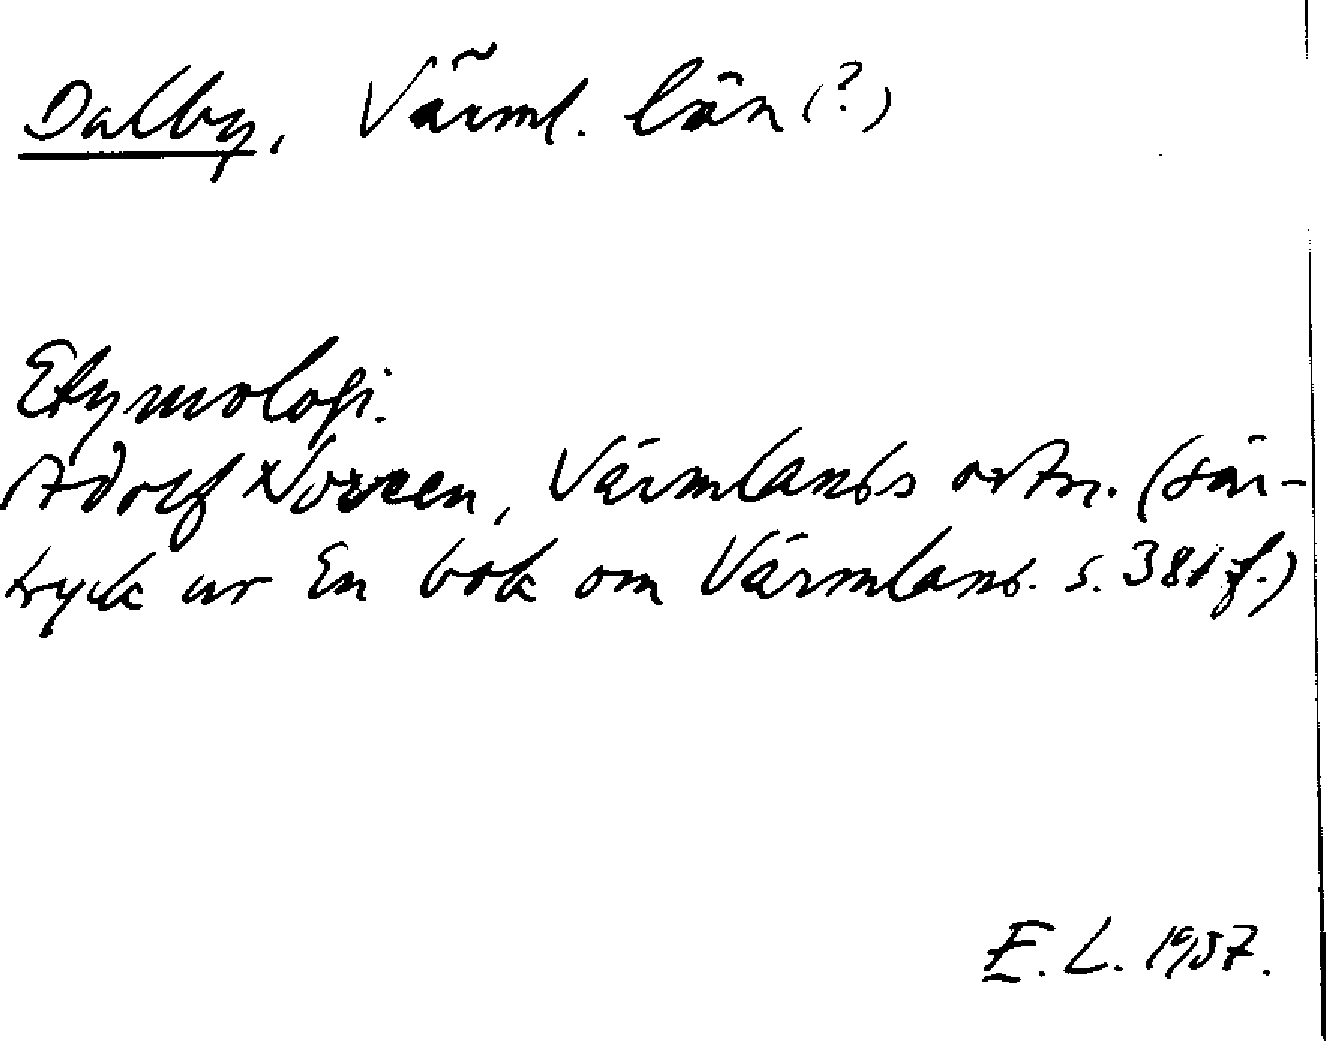 Dalby, Värml. län (?)
Etymologi.
Adolf Noreen, Värmlands ortn. (sär-
tryck ur En bok om Värmland. s. 381 f.)
E. L. 1937.